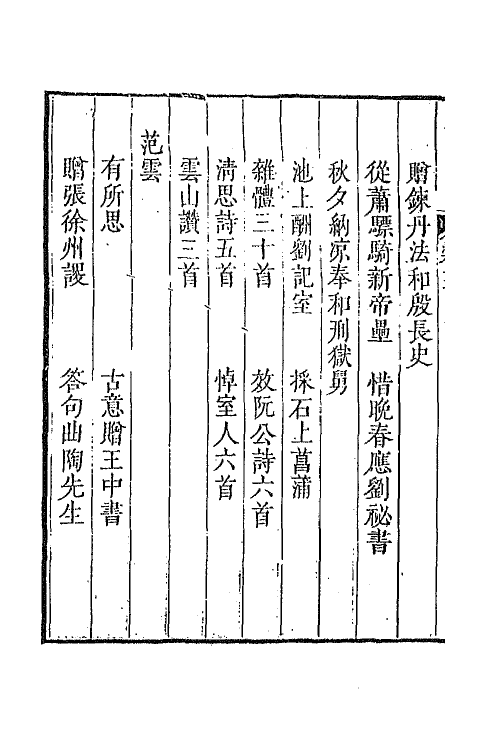 贈鍊丹法和殷長史
從蕭驃騎新帝壘　惜晚春應劉祕書
秋夕納凉奉和刑獄舅
池上酬劉記室　採石上菖蒲
雜體三十首　效阮公詩六首
清思詩五首　悼室人六首
雲山讚三首
范雲
有所思　古意贈王中書
贈張徐州謖　答句曲陶先生